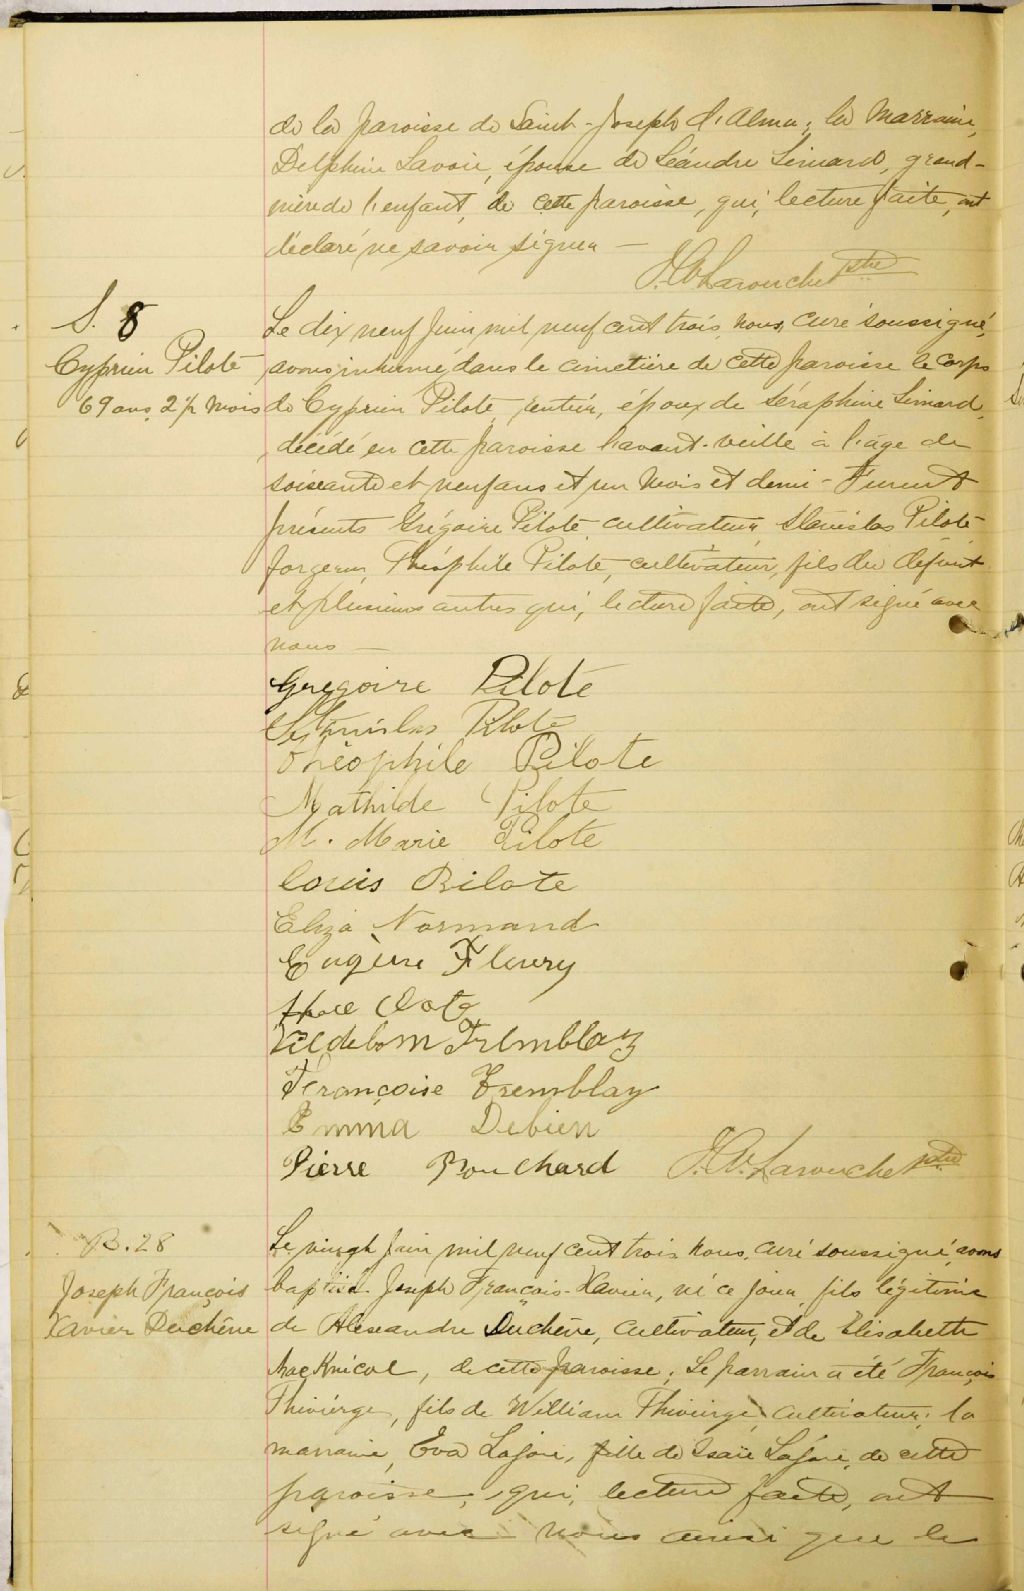 de la paroisse de Saint-Joseph d'Alma; la Marraine,
Delphine Savoie, épouse de Léandre Simard, grand-
mère de l'enfant, de cette paroisse, qui, lecture faite, ont
déclaré ne savoir signer —
J. Larouche ptre
S. 8
Cyprien Pilote
69 ans 2½ mois
Le dix neuf Juin mil neuf cent trois, nous, curé soussigné,
avons inhumé, dans le cimetière de cette paroisse le corps
de Cyprien Pilote, rentier, époux de Séraphine Simard,
décédé en cette paroisse l'avant-veille à l'âge de
soixante et neuf ans et un mois et demi - Furent
présents Grégoire Pilote cultivateur, Stanislas Pilote
forgeron, Théophile Pilote, cultivateur, fils du défunt
et plusieurs autres qui, lecture faite, ont signé avec
nous —
Gregoire Pilote
Stanislas Pilote
Théophile Pilote
Mathilde Pilote
M. Marie Pilote
Louis Pilote
Eliza Normand
Eugène Fleury
Tremblay
Françoise Tremblay
Emma Debien
Pierre Bouchard
J. Larouche ptre
B. 28
Joseph François
Xavier Duchêne
Le vingt Juin mil neuf cent trois nous, curé soussigné, avons
baptisé Joseph François-Xavier, né ce jour, fils légitime
de Alexandre Duchêne, cultivateur, et de Elisabeth
MacKnicol, de cette paroisse; Le parrain a été François
Thivierge, fils de William Thivierge, cultivateur; la
marraine, Eva Lajoie, fille de Isaïe Lajoie, de cette
paroisse, qui, lecture faite, ont
signé avec nous ainsi que le